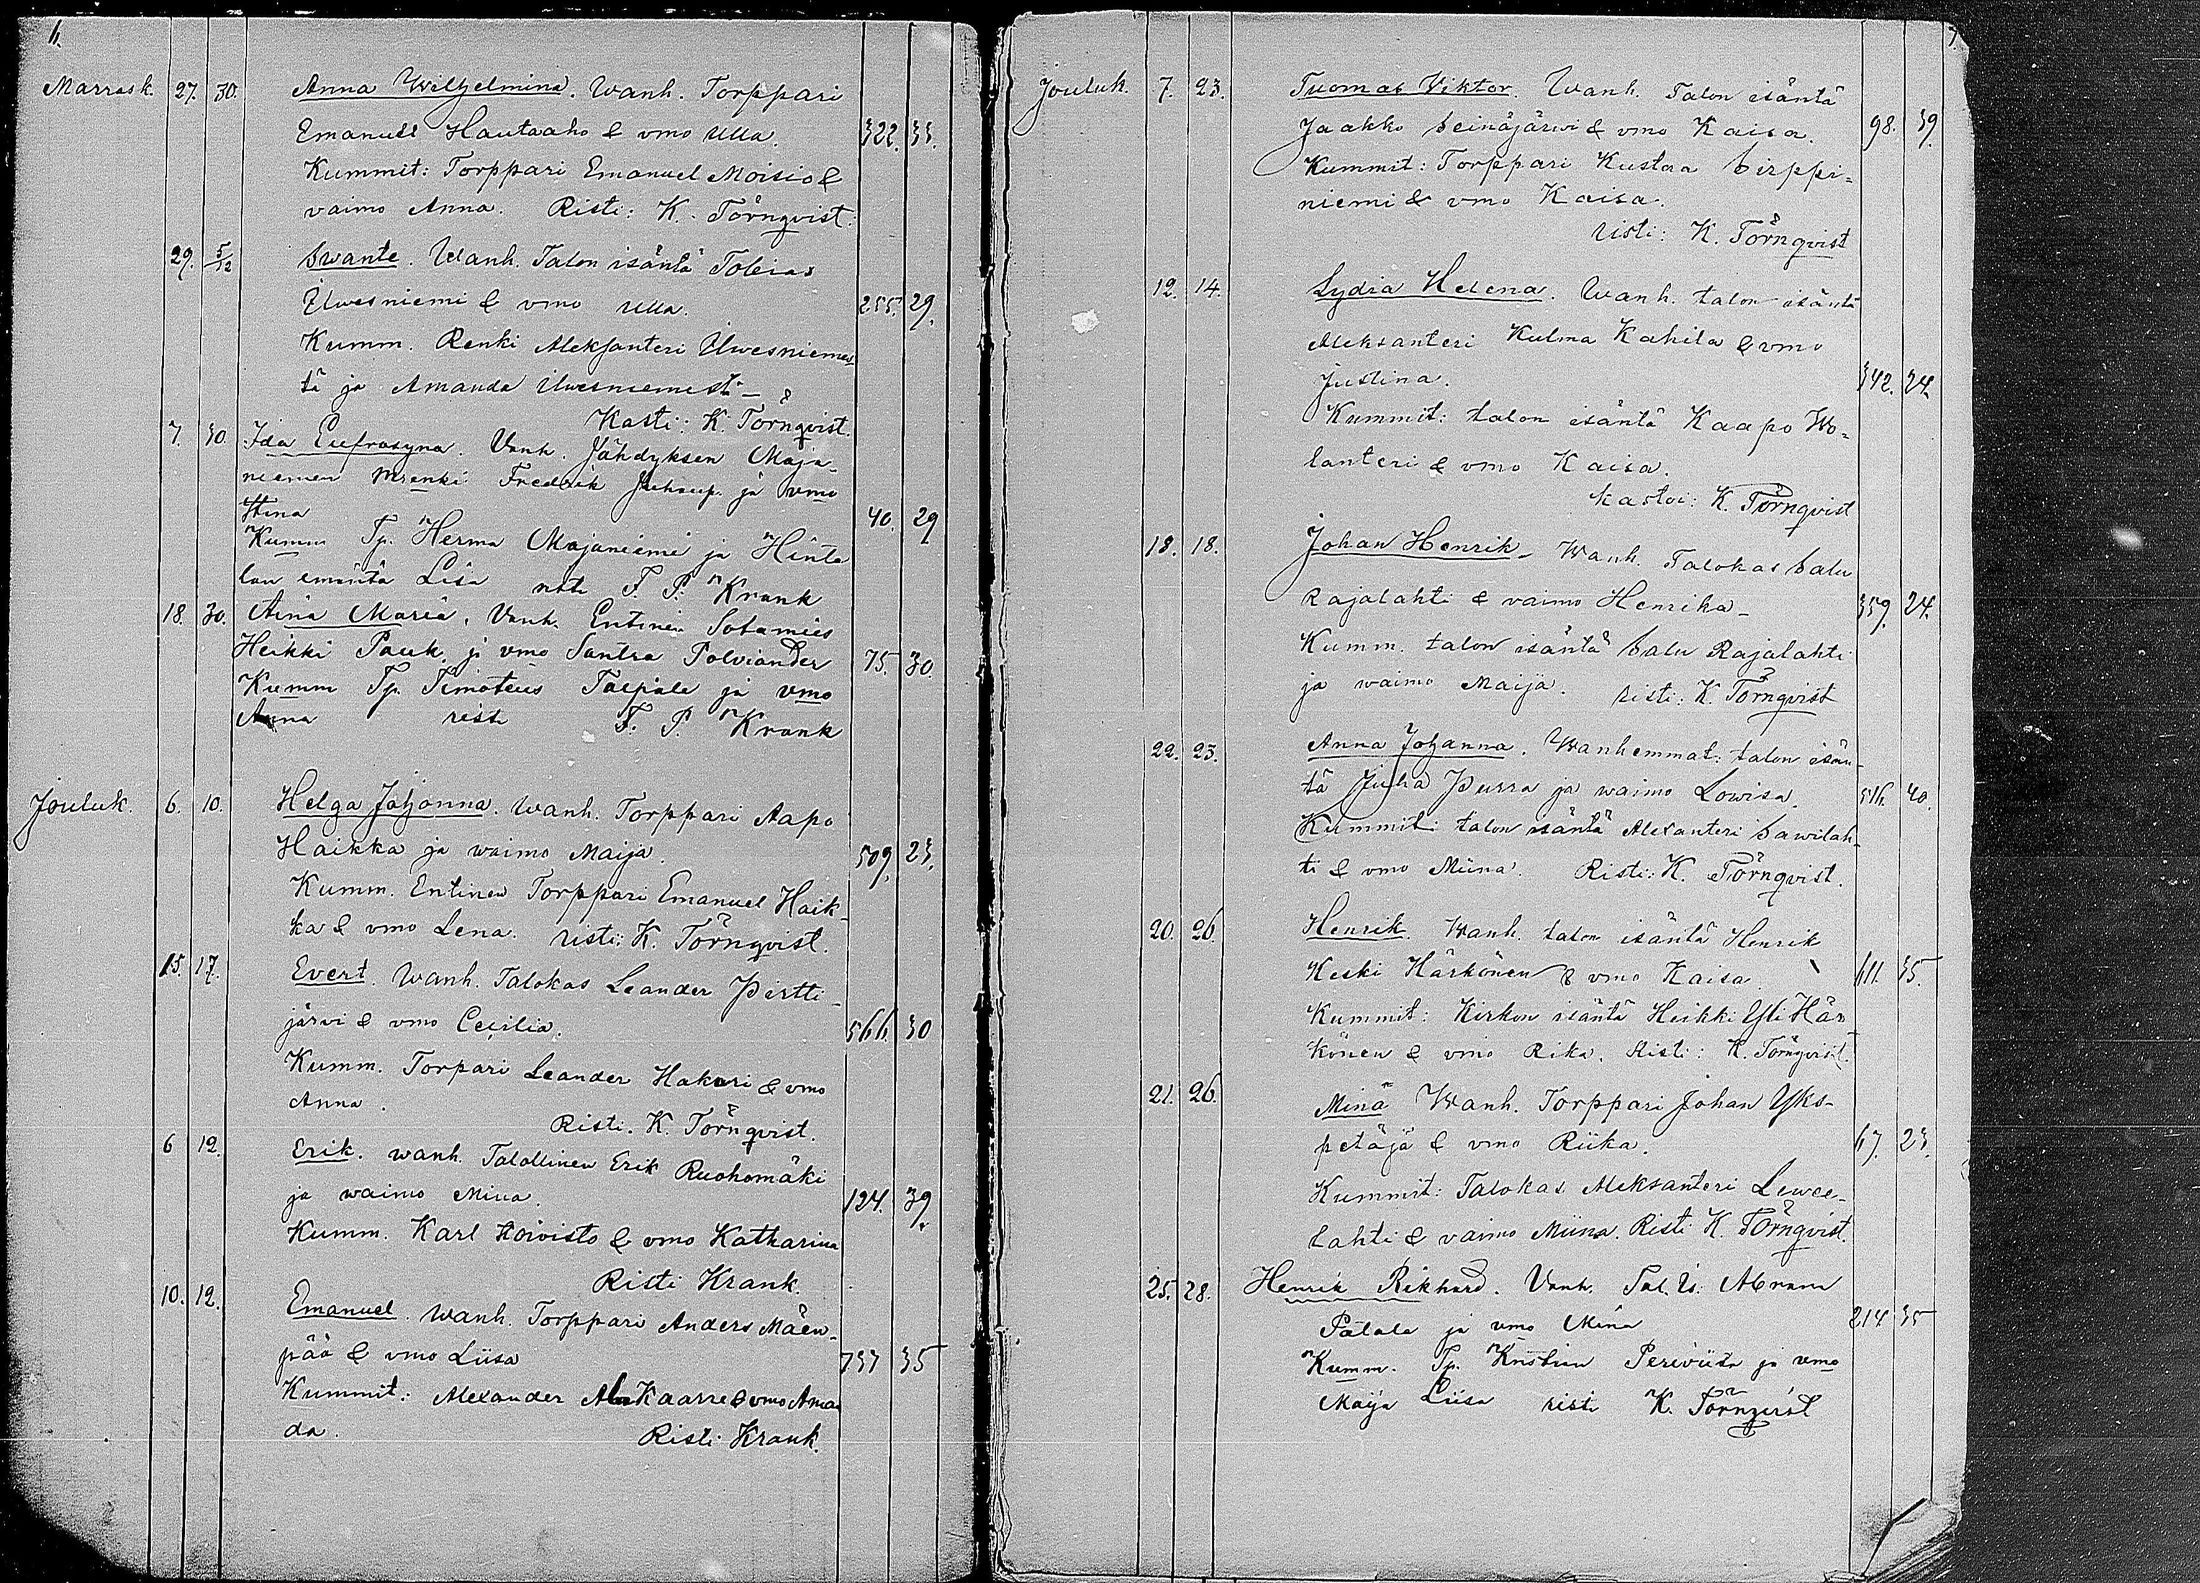 6.
Marrask. 27. 30. Anna Wilhelmina. Wanh. Torppari
Emanuel Hautaaho & vmo Ulla. 322. 33.
Kummit: Torppari Emanuel Moisio &
vaimo Anna. Risti: K. Törnqvist.
29. 5/12 Swante. Wanh. Talon isäntä Tobias
Ilwesniemi & vmo Ulla. 255. 29.
Kumm. Renki Aleksanteri Ilwesniemes-
tä ja Amanda Ilwesniemest-
Kasti: K. Törnqvist.
7. 30. Ida Eufrosyna. Vanh. Jähdyksen Maja-
niemen renki Fredrik Juhonp. ja vmo
Stina 40. 29
Kumm Tp. Herma Majaniemi ja Hinta
lan emäntä Lisa risti F. P. Krank
18. 30. Aina Maria. Vanh. Entinen Sotamies
Heikki Pauk. ja vmo Santra Polviander 75. 30.
Kumm Tp. Timoteus Taipale ja vmo
Anna risti F. P. Krank
Jouluk. 6. 10. Helga Johanna. Wanh. Torppari Aapo
Haikka ja waimo Maija. 509. 23.
Kumm. Entinen Torppari Emanuel Haik-
ka & vmo Lena. risti: K. Törnqvist.
15. 17. Evert. Wanh. Talokas Leander Pirtti-
järvi & vmo Cecilia. 566. 30
Kumm. Torpari Leander Hakari & vmo
Anna.
Risti. K. Törnqvist.
6 12. Erik. wanh. Talollinen Erik Ruohomäki
ja waimo Miina. 124. 39.
Kumm. Karl Koivisto & vmo Katharina
Risti Krank.
10. 12. Emanuel. Wanh. Torppari Anders Mäen-
pää & vmo Liisa 737 35
Kummit: Alexander Ala Kaarre & vmo Aman
da.
Risti Krank.
7.
Jouluk. 7. 23. Tuomas Viktor. Wanh. Talon isäntä
Jaakko Seinäjärwi & vmo Kaisa. 98. 39.
Kummit: Torppari Kustaa Sirppi-
niemi & vmo Kaisa.
risti: K. Törnqvist
12. 14. Lydia Helena. Wanh. talon isäntä
Aleksanteri Kulma Kahila & vmo
Justina. 342. 24.
Kummit: talon isäntä Kaapo Wo-
lanteri & vmo Kaisa.
kastoi: K. Törnqvist
18. 18. Johan Henrik. Wanh. Talokas Salu
Rajalahti & vaimo Henrika- 359. 24.
Kumm. talon isäntä Salu Rajalahti
ja waimo Maija. risti: K. Törnqvist
22. 23. Anna Johanna. Wanhemmat: talon isän-
tä Juha Purra ja waimo Lowisa. 516. 40.
Kummit: talon isäntä Alexanteri Sawilah-
ti & vmo Miina. Risti: K. Törnqvist.
20. 26. Henrik. Wanh. talon isäntä Henrik
Keski Härkönen & vmo Kaisa. 611. 35.
Kummit: Kirkon isäntä Heikki Yli Här-
könen & vmo Rika. Risti: K. Törnqvist.
21. 26. Mina Wanh. Torppari Johan Yks-
petäjä & vmo Riika. 67. 23.
Kummit: Talokas Aleksanteri Lewee-
lahti & vaimo Miina. Risti K. Törnqvist.
25. 28. Henrik Rikhard. Vanh. Tal. is. Abram
Patala ja vmo Mina 214 35
Kumm. Tp. Kristian ja vmo
Maija Liisa risti K. Törnqvist